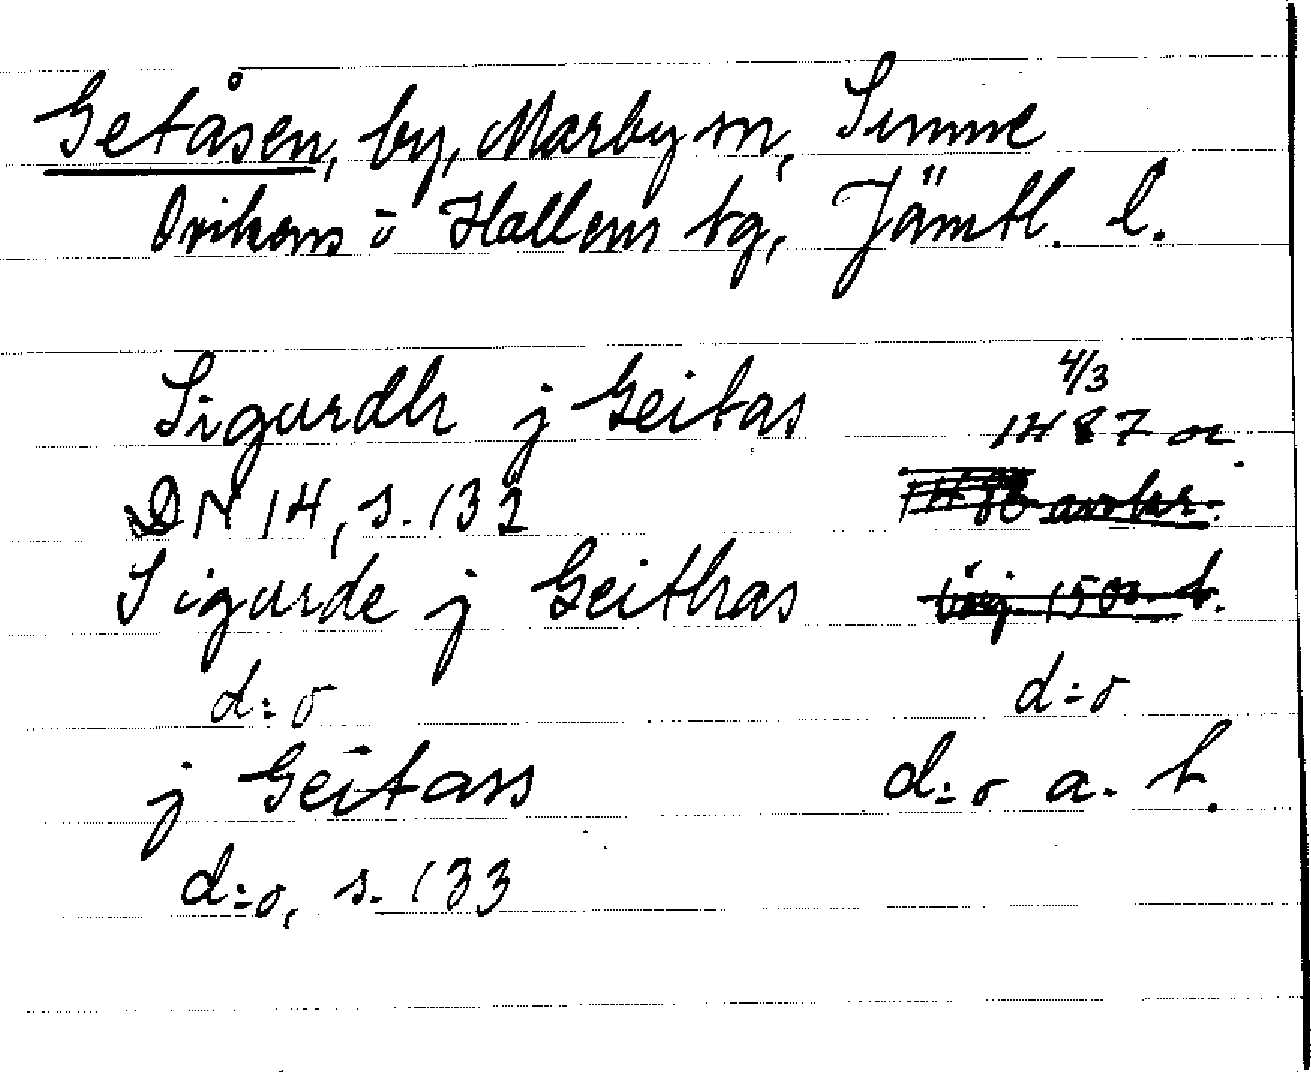 Getåsen, by, Marby sn, Sunne
Ovikens o Hallens tg, Jämtl. l.
4/3
Sigurdh j Geitas 1487 or.
DN 14, s. 132
Sigurde j Geithas
d:o d:o
j Geitass d:o a. t.
d:o, s. 133